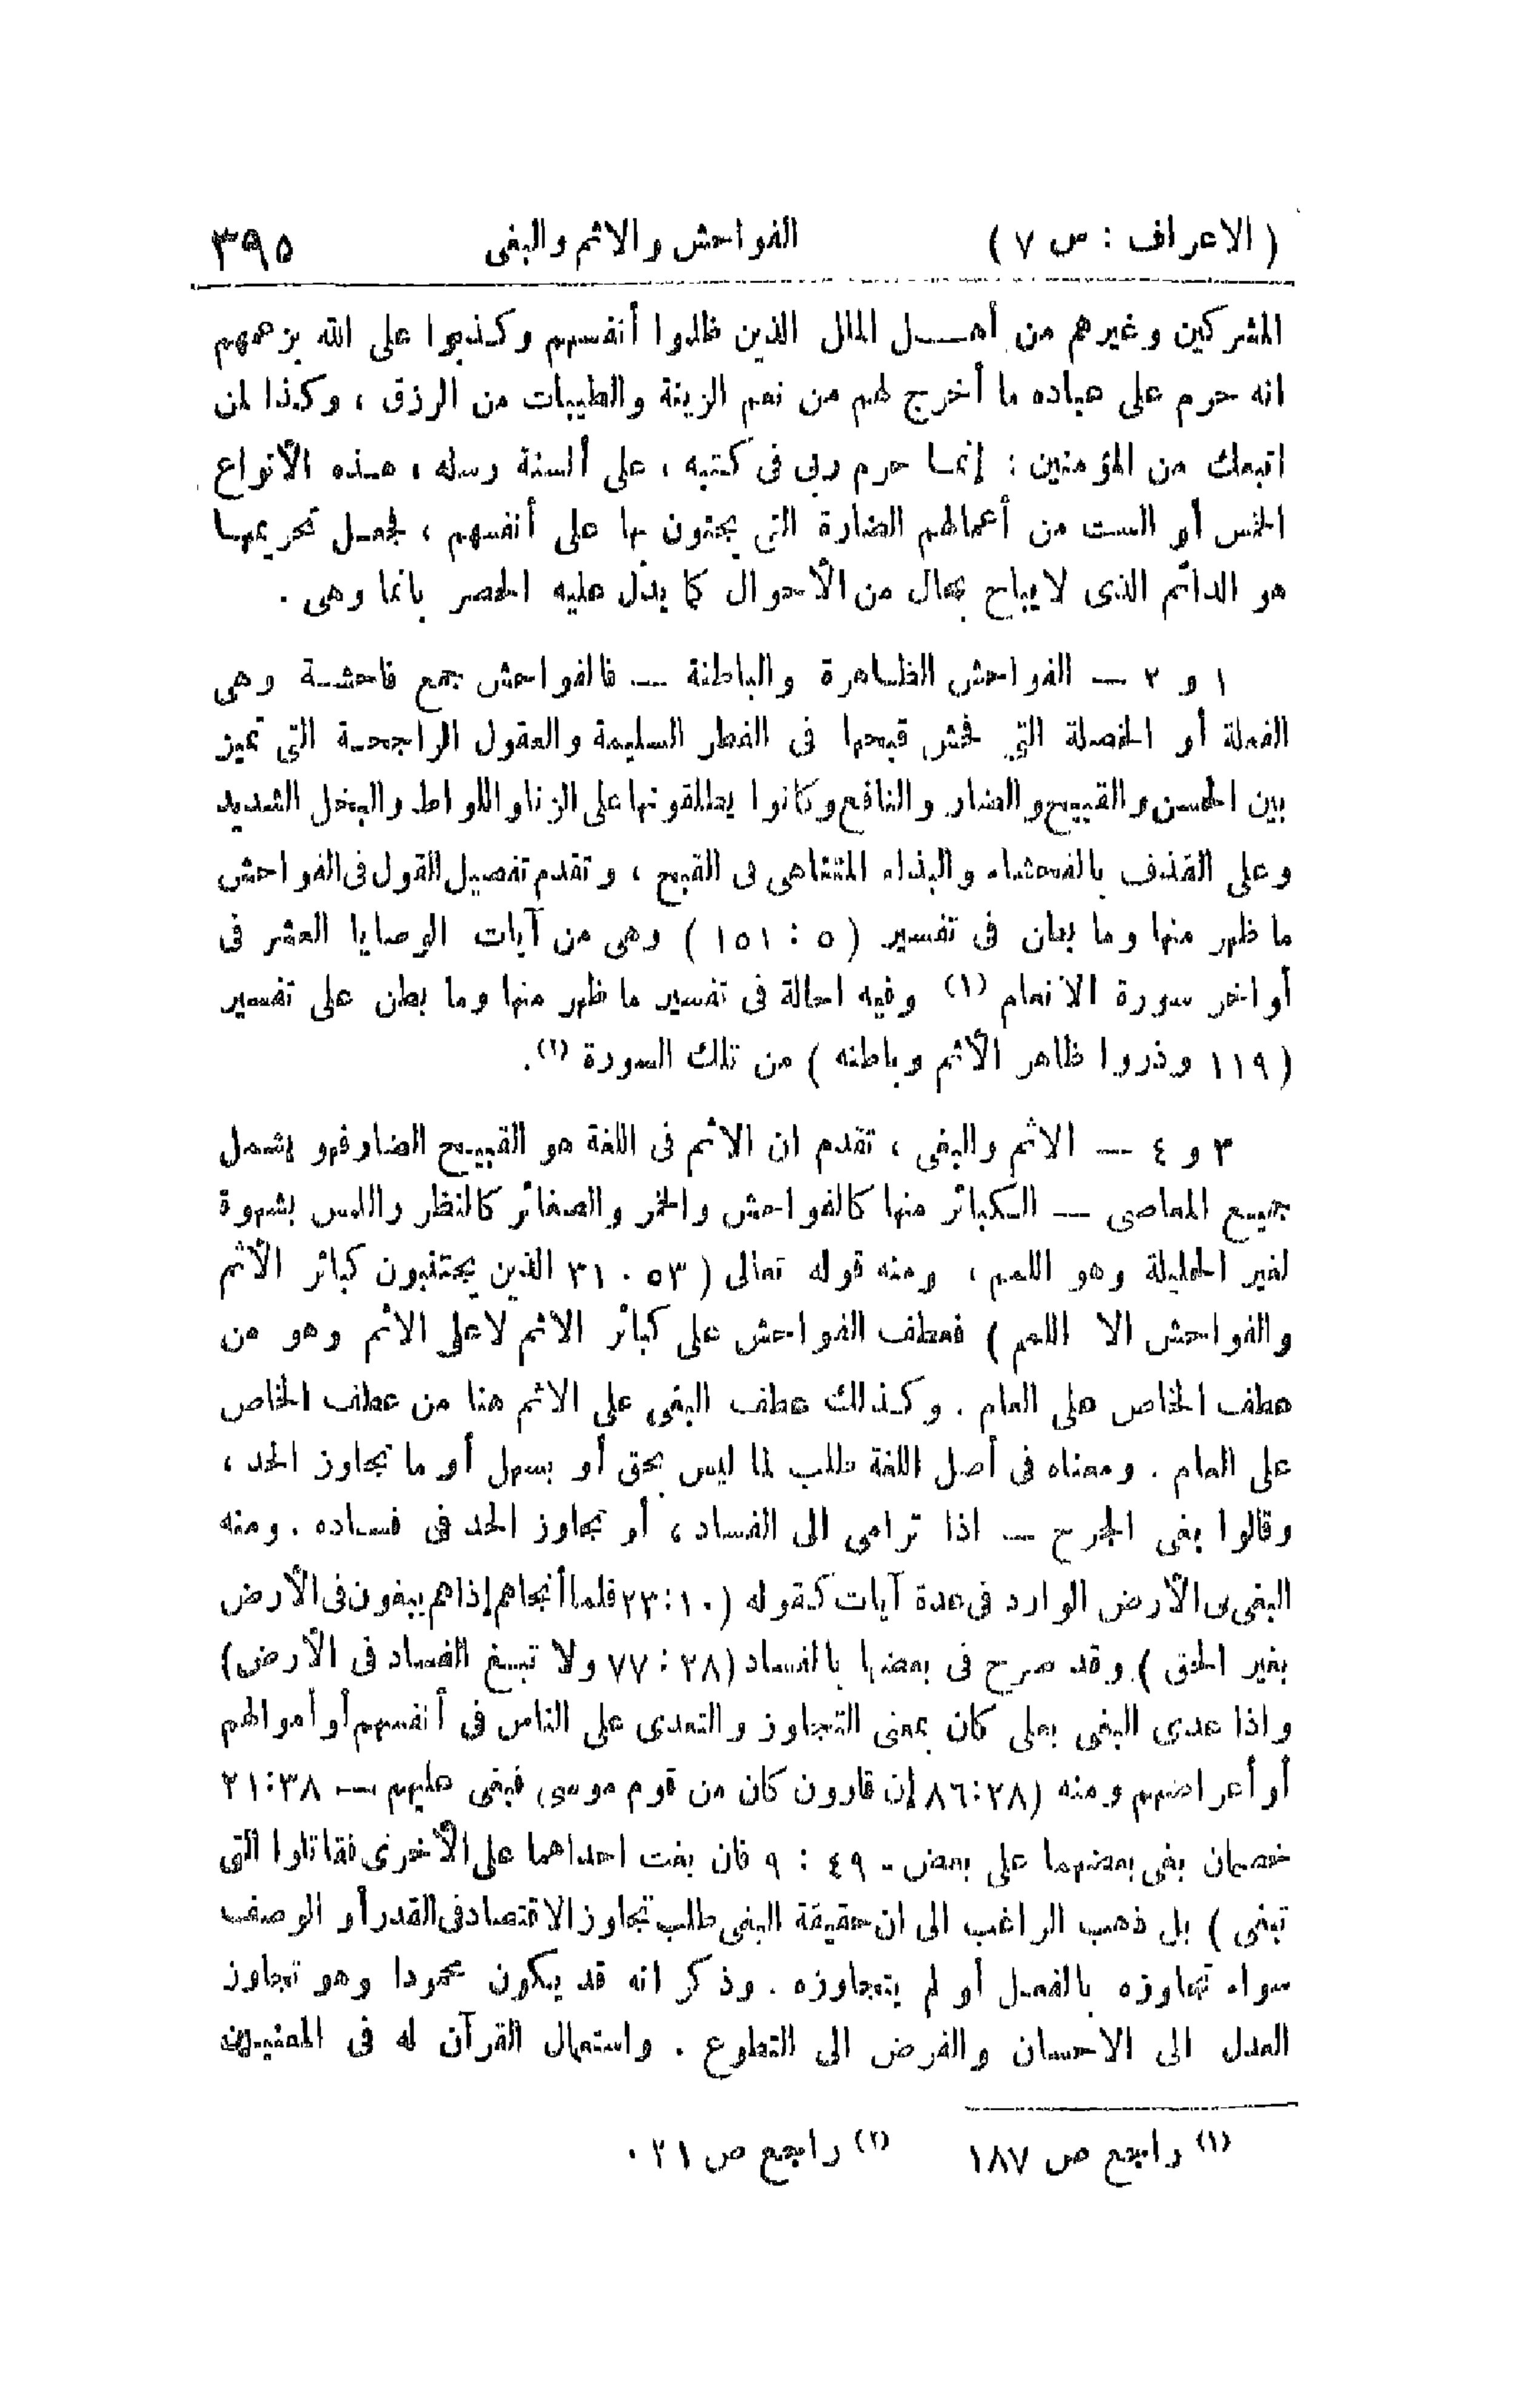 ( الاعراف : س ٧ ) الفواحش والاثم والبغى ٣٩٥
المشركين وغيرهم من أهـــل الملل الذين ظلموا أنفسهم وكذبوا على الله بزعمهم
انه حرم على عباده ما أخرج لهم من نعم الزينة والطيبات من الرزق ، وكذا لمن
اتبعك من المؤمنين : إنمـا حرم ربى فى كتبه ، على ألسنة رسله ، هـذه الأنواع
الخمس أو الست من أعمالهم الضارة التى يجنون بها على أنفسهم ، فجعـل تحريمهـا
هو الدائم الذى لايباح بحال من الأحوال كما يدل عليه الحصر بانما وهى .
١ و ٢ — الفواحش الظـاهرة والباطنة — فالفواحش جمع فاحشـة وهى
الفعلة أو الخصلة التى فحش قبحها فى الفطر السليمة والعقول الراجحـة التى تميز
بين الحسن والقبيح والضار والنافع وكانوا يطلقونها على الزنا واللواط والبخل الشديد
وعلى القذف بالفحشاء والبذاء المتناهى فى القبح ، وتقدم تفصيل القول فى الفواحش
ما ظهر منها وما بطن فى تفسير ( ٥ : ١٥١ ) وهى من آيات الوصايا العشر فى
أواخر سورة الانعام (١) وفيه احالة فى تفسير ما ظهر منها وما بطن على تفسير
( ١١٩ وذروا ظاهر الأثم وباطنه ) من تلك السورة (٢).
٣ و ٤ — الاثم والبغى ، تقدم ان الاثم فى اللغة هو القبيـح الضار فهو يشمل
جميـع المعاصى — الكبائر منها كالفواحش والخمر والصغائر كالنظر واللمس بشهوة
لغير الحليلة وهو اللمم ، ومنه قوله تعالى ( ٥٣ . ٣١ الذين يجتنبون كبائر الأثم
والفواحش الا اللمم ) فعطف الفواحش على كبائر الاثم لا على الاثم وهو من
عطف الخاص على العام . وكذلك عطف البغى على الاثم هنا من عطف الخاص
على العام . ومعناه فى أصل اللغة طلب لما ليس بحق أو بسهل أو ما تجاوز الحد ،
وقالوا بغى الجرح — اذا ترامى الى الفساد ، أو تجاوز الحد فى فسـاده . ومنه
البغى فى الأرض الوارد فى عدة آيات كقوله ( ١٠ : ٢٣ فلما أنجاهم إذا هم يبغون فى الأرض
بغير الحق ) وقد صرح فى بعضها بالفساد ( ٢٨ : ٧٧ ولا تبـغ الفساد فى الأرض )
واذا عدى البغى بعلى كان بمعنى التجاوز والتعدى على الناس فى أنفسهم أو أموالهم
أو أعراضهم ومنه ( ٢٨ : ٨٦ إن قارون كان من قوم موسى فبغى عليهم — ٣٨ : ٢١
خصمان بغى بعضهما على بعض - ٤٩ : ٩ فان بغت احداهما على الأخرى فقاتلوا التى
تبغى ) بل ذهب الراغب الى ان حقيقة البغى طلب تجاوز الاقتصاد فى القدر أو الوصف
سواء تجاوزه بالفعـل أو لم يتجاوزه . وذكر انه قد يكون محمودا وهو تجاوز
العدل الى الاحسان والفرض الى التطوع . واستعمال القرآن له فى المعنيـين
(١) راجع ص ١٨٧ (٢) راجع ص ٢١ .